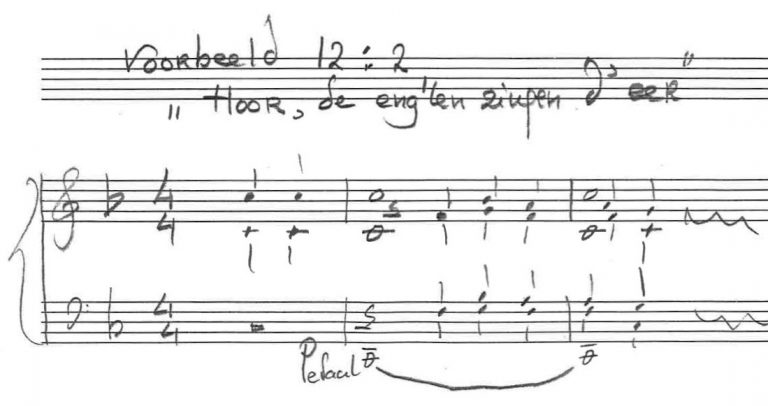 Voorbeeld 12:2
"Hoor, de eng'len zingen d' eer"
4
4
4
4
Pedaal